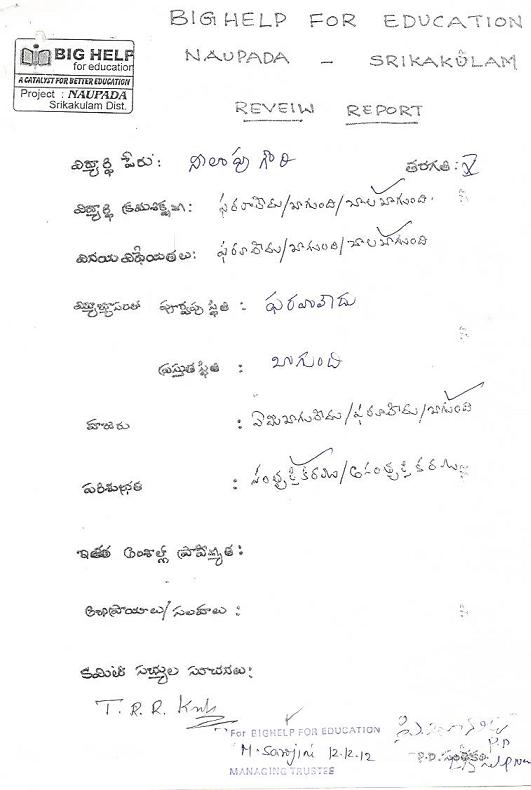 BIGHELP FOR EDUCATION
BIG HELP
for education
A CATALYST FOR BETTER EDUCATION
Project : NAUPADA
Srikakulam Dist.
NAUPADA - SRIKAKULAM
REVEIW REPORT
విద్యార్థి పేరు: గౌరి తరగతి: V
విద్యార్థి క్రమశిక్షణ: ఫరవాలేదు/బాగుంది/చాలబాగుంది.
వినయ విధేయతలు: ఫరవాలేదు/బాగుంది/చాలబాగుంది
పూర్వపు స్థితి : ఫరవాలేదు
ప్రస్తుత స్థితి : బాగుంది
హాజరు : ఏమిబాగులేదు/ఫరవాలేదు/బాగుంది
పరిశుభ్రత : సంతృప్తికరము/అసంతృప్తికరము
ఇతర అంశాల్లో ప్రావీణ్యత:
అభిప్రాయాలు/సలహాలు :
కమిటి సభ్యుల సూచనలు:
T. R. R.
For BIGHELP FOR EDUCATION
M. Sarojini 12.12.12
MANAGING TRUSTEE
P.D. సంతకం